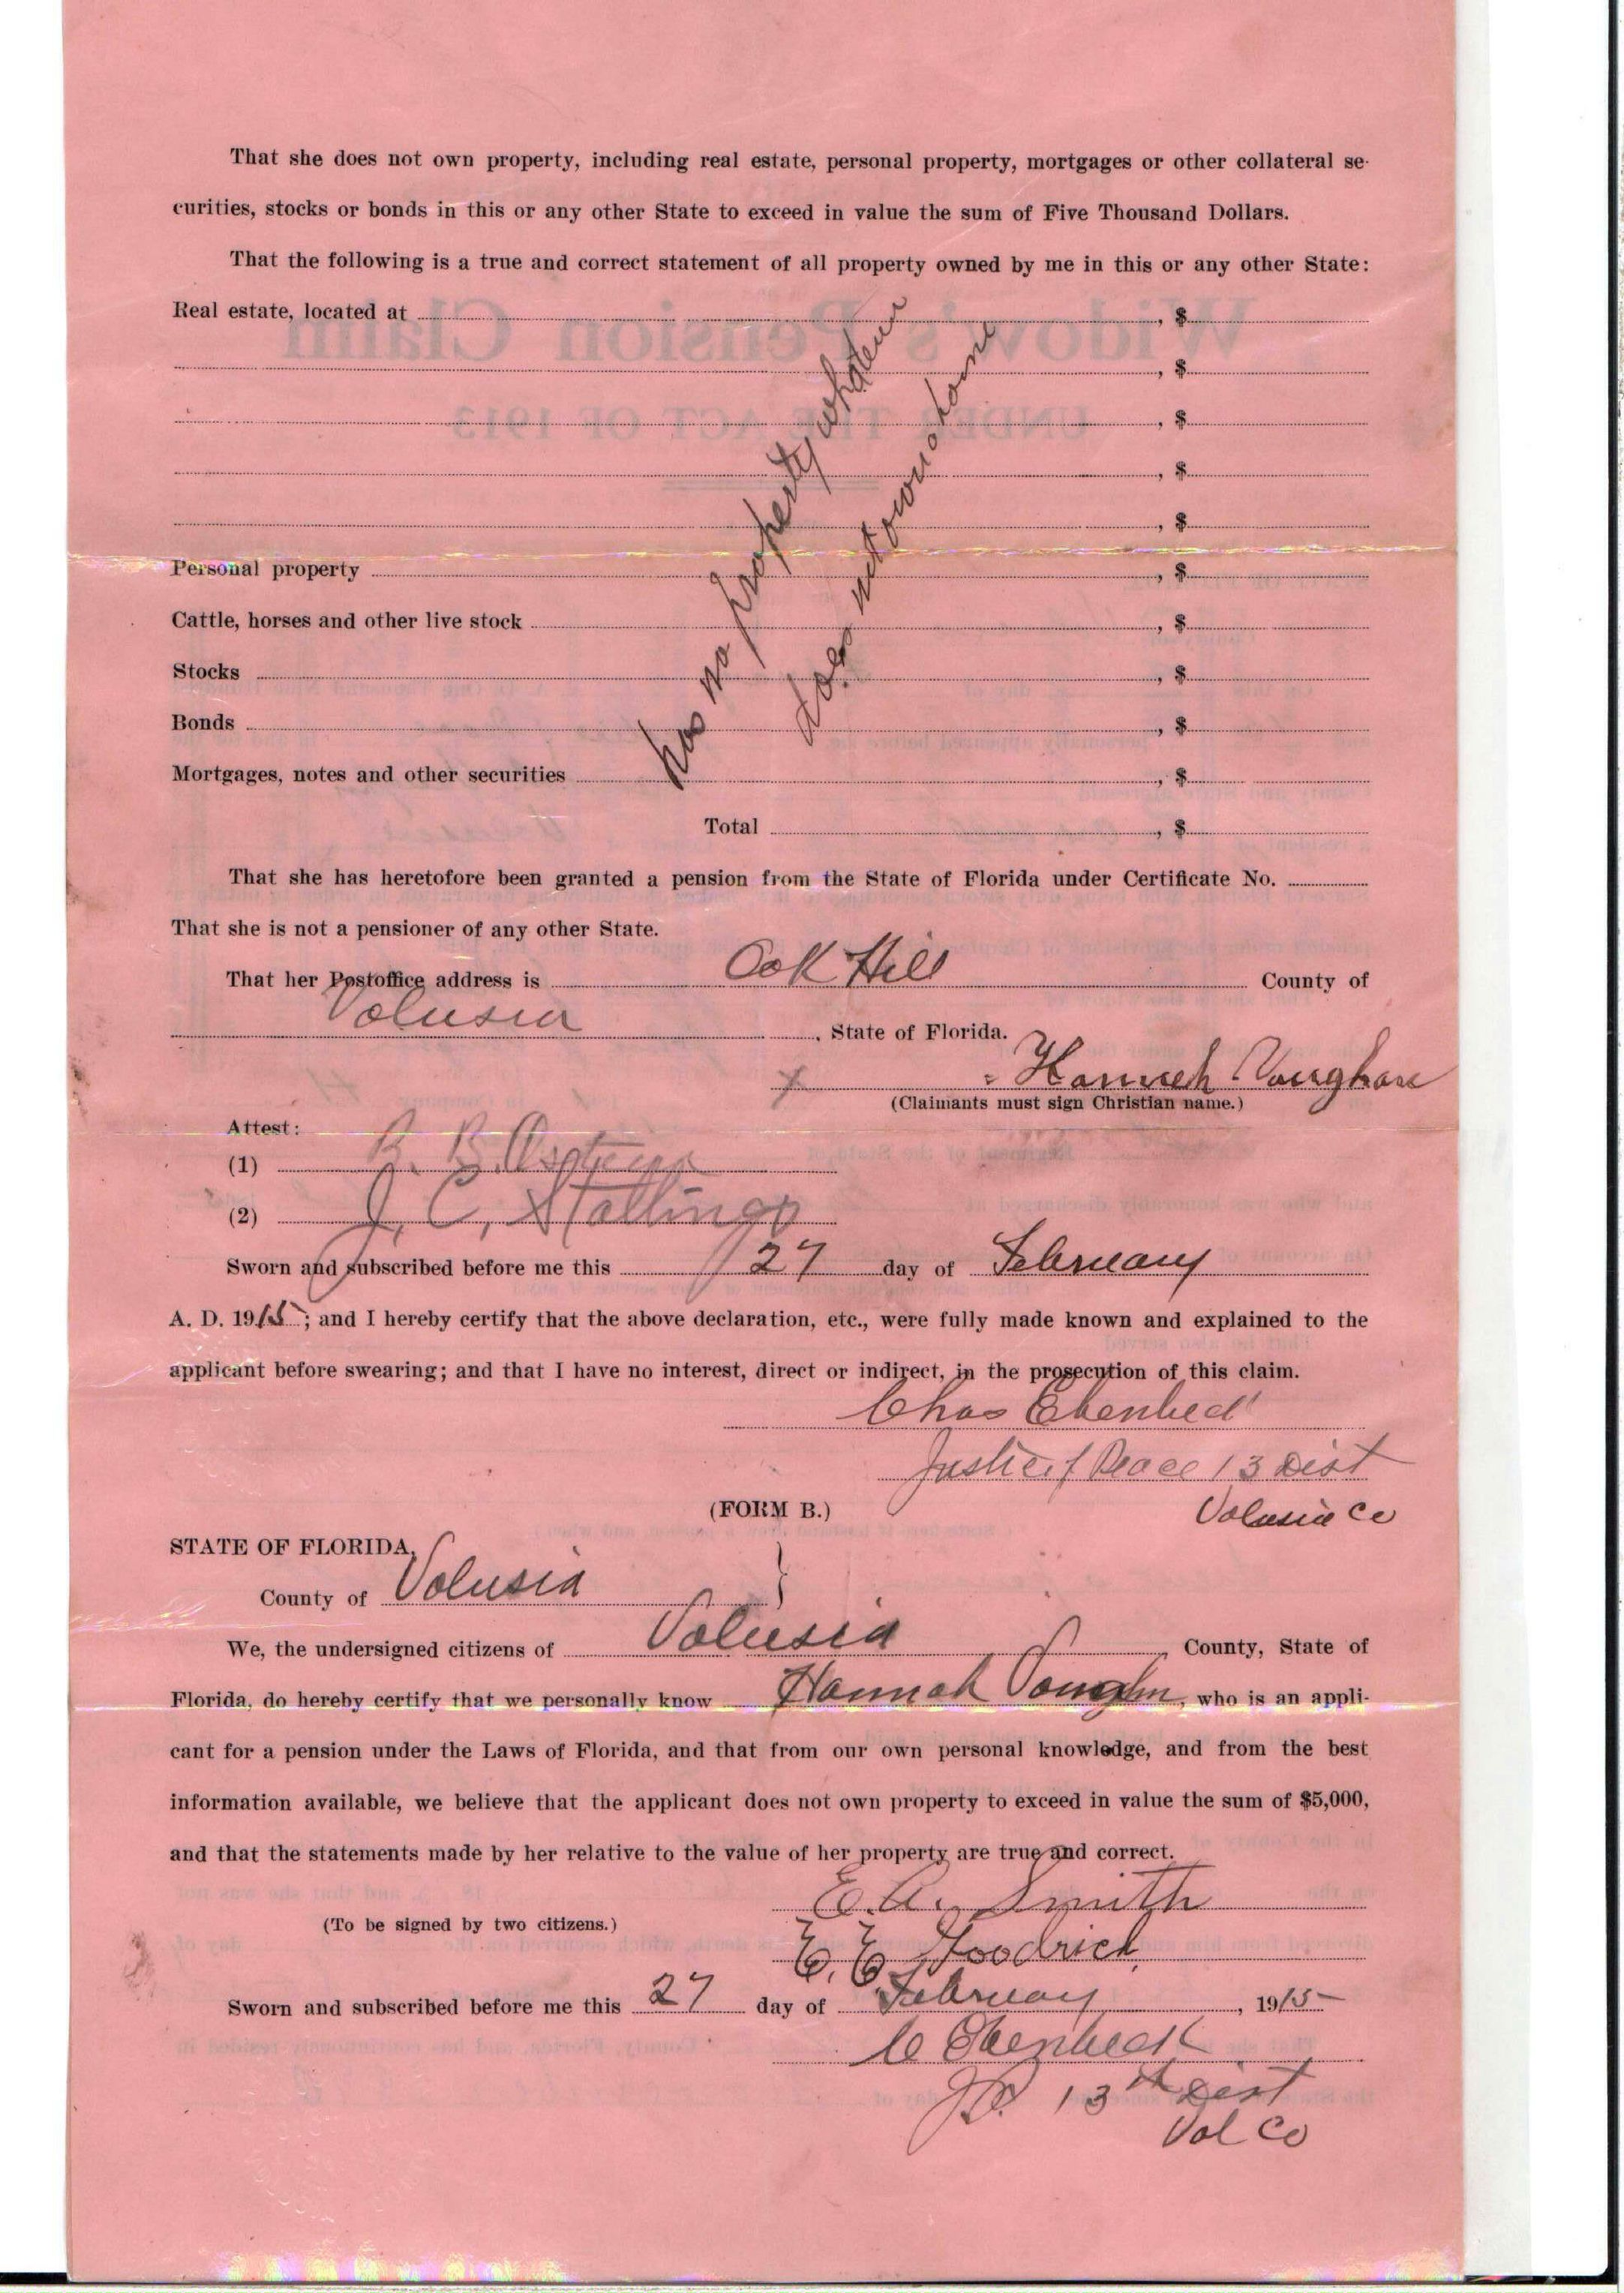 That she does not own property, including real estate, personal property, mortgages or other collateral se-
curities, stocks or bonds in this or any other State to exceed in value the sum of Five Thousand Dollars.
That the following is a true and correct statement of all property owned by me in this or any other State:
Real estate, located at , $
, $
, $
, $
, $
Personal property , $
Cattle, horses and other live stock , $
Stocks , $
Bonds , $
Mortgages, notes and other securities , $
has no property whatever
does not own a home
Total , $
That she has heretofore been granted a pension from the State of Florida under Certificate No.
That she is not a pensioner of any other State.
That her Postoffice address is Oak Hill County of
Volusia , State of Florida.
x Hannah Vaughan
(Claimants must sign Christian name.)
Attest:
(1) B. B.
(2) J. C. Stallings
Sworn and subscribed before me this 27 day of February
A. D. 1915; and I hereby certify that the above declaration, etc., were fully made known and explained to the
applicant before swearing; and that I have no interest, direct or indirect, in the prosecution of this claim.
Chas
Justice of Peace 13 Dist
Volusia Co
(FORM B.)
STATE OF FLORIDA,
County of Volusia }
We, the undersigned citizens of Volusia County, State of
Florida, do hereby certify that we personally know Hannah Vaughn, who is an appli-
cant for a pension under the Laws of Florida, and that from our own personal knowledge, and from the best
information available, we believe that the applicant does not own property to exceed in value the sum of $5,000,
and that the statements made by her relative to the value of her property are true and correct.
E. A. Smith
(To be signed by two citizens.)
E. E. Goodrich
Sworn and subscribed before me this 27 day of February , 1915
C
J.P. 13th Dist
Vol Co